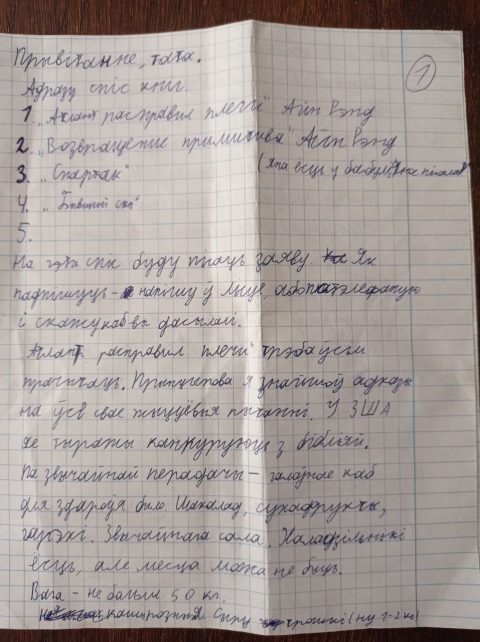 Прывітанне, тата.
1
Адразу спіс кніг.
1. „Атлант расправил плечи" Айн Рэнд
2. „Возвращение примитива" Айн Рэнд
3. „Спартак" (яна ёсць у бабулі,
4.
5.
На гэты спіс буду пісаць заяву. Як
падпішуць - напішу ў лісце, або патэлефаную
і скажу каб вы дасылалі.
„Атлант расправил плечи" трэба ўсім
прачытаць. Прынцыпова я знайшоў адказы
на ўсе свае жыццёвыя пытанні. У ЗША
яе тыражы канкуруюць з бібліяй.
Па звычайнай перадачы - галоўнае каб
для здароўя было. Шакалад, сухафрукты,
гарэхі. Звычайнага сала. Халадзільнікі
ёсць, але месца можа не быць.
Вага - не больш 50 кг.
сыну трошкі (ну 1-2 кг)